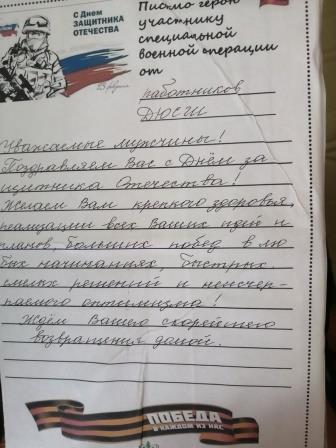 С Днем
ЗАЩИТНИКА
ОТЕЧЕСТВА
23 февраля
Письмо герою
участнику
специальной
военной операции
от
работников
ДЮСШ
Уважаемые мужчины!
Поздравляем Вас с Днём за
щитника Отечества!
Желаем Вам крепкого здоровья,
реализации всех Ваших идей и
планов, больших побед в лю
бых начинаниях, быстрых
смелых решений и неисчер-
паемого оптимизма!
Ждём Вашего скорейшего
возвращения домой.
ПОБЕДА
В КАЖДОМ ИЗ НАС